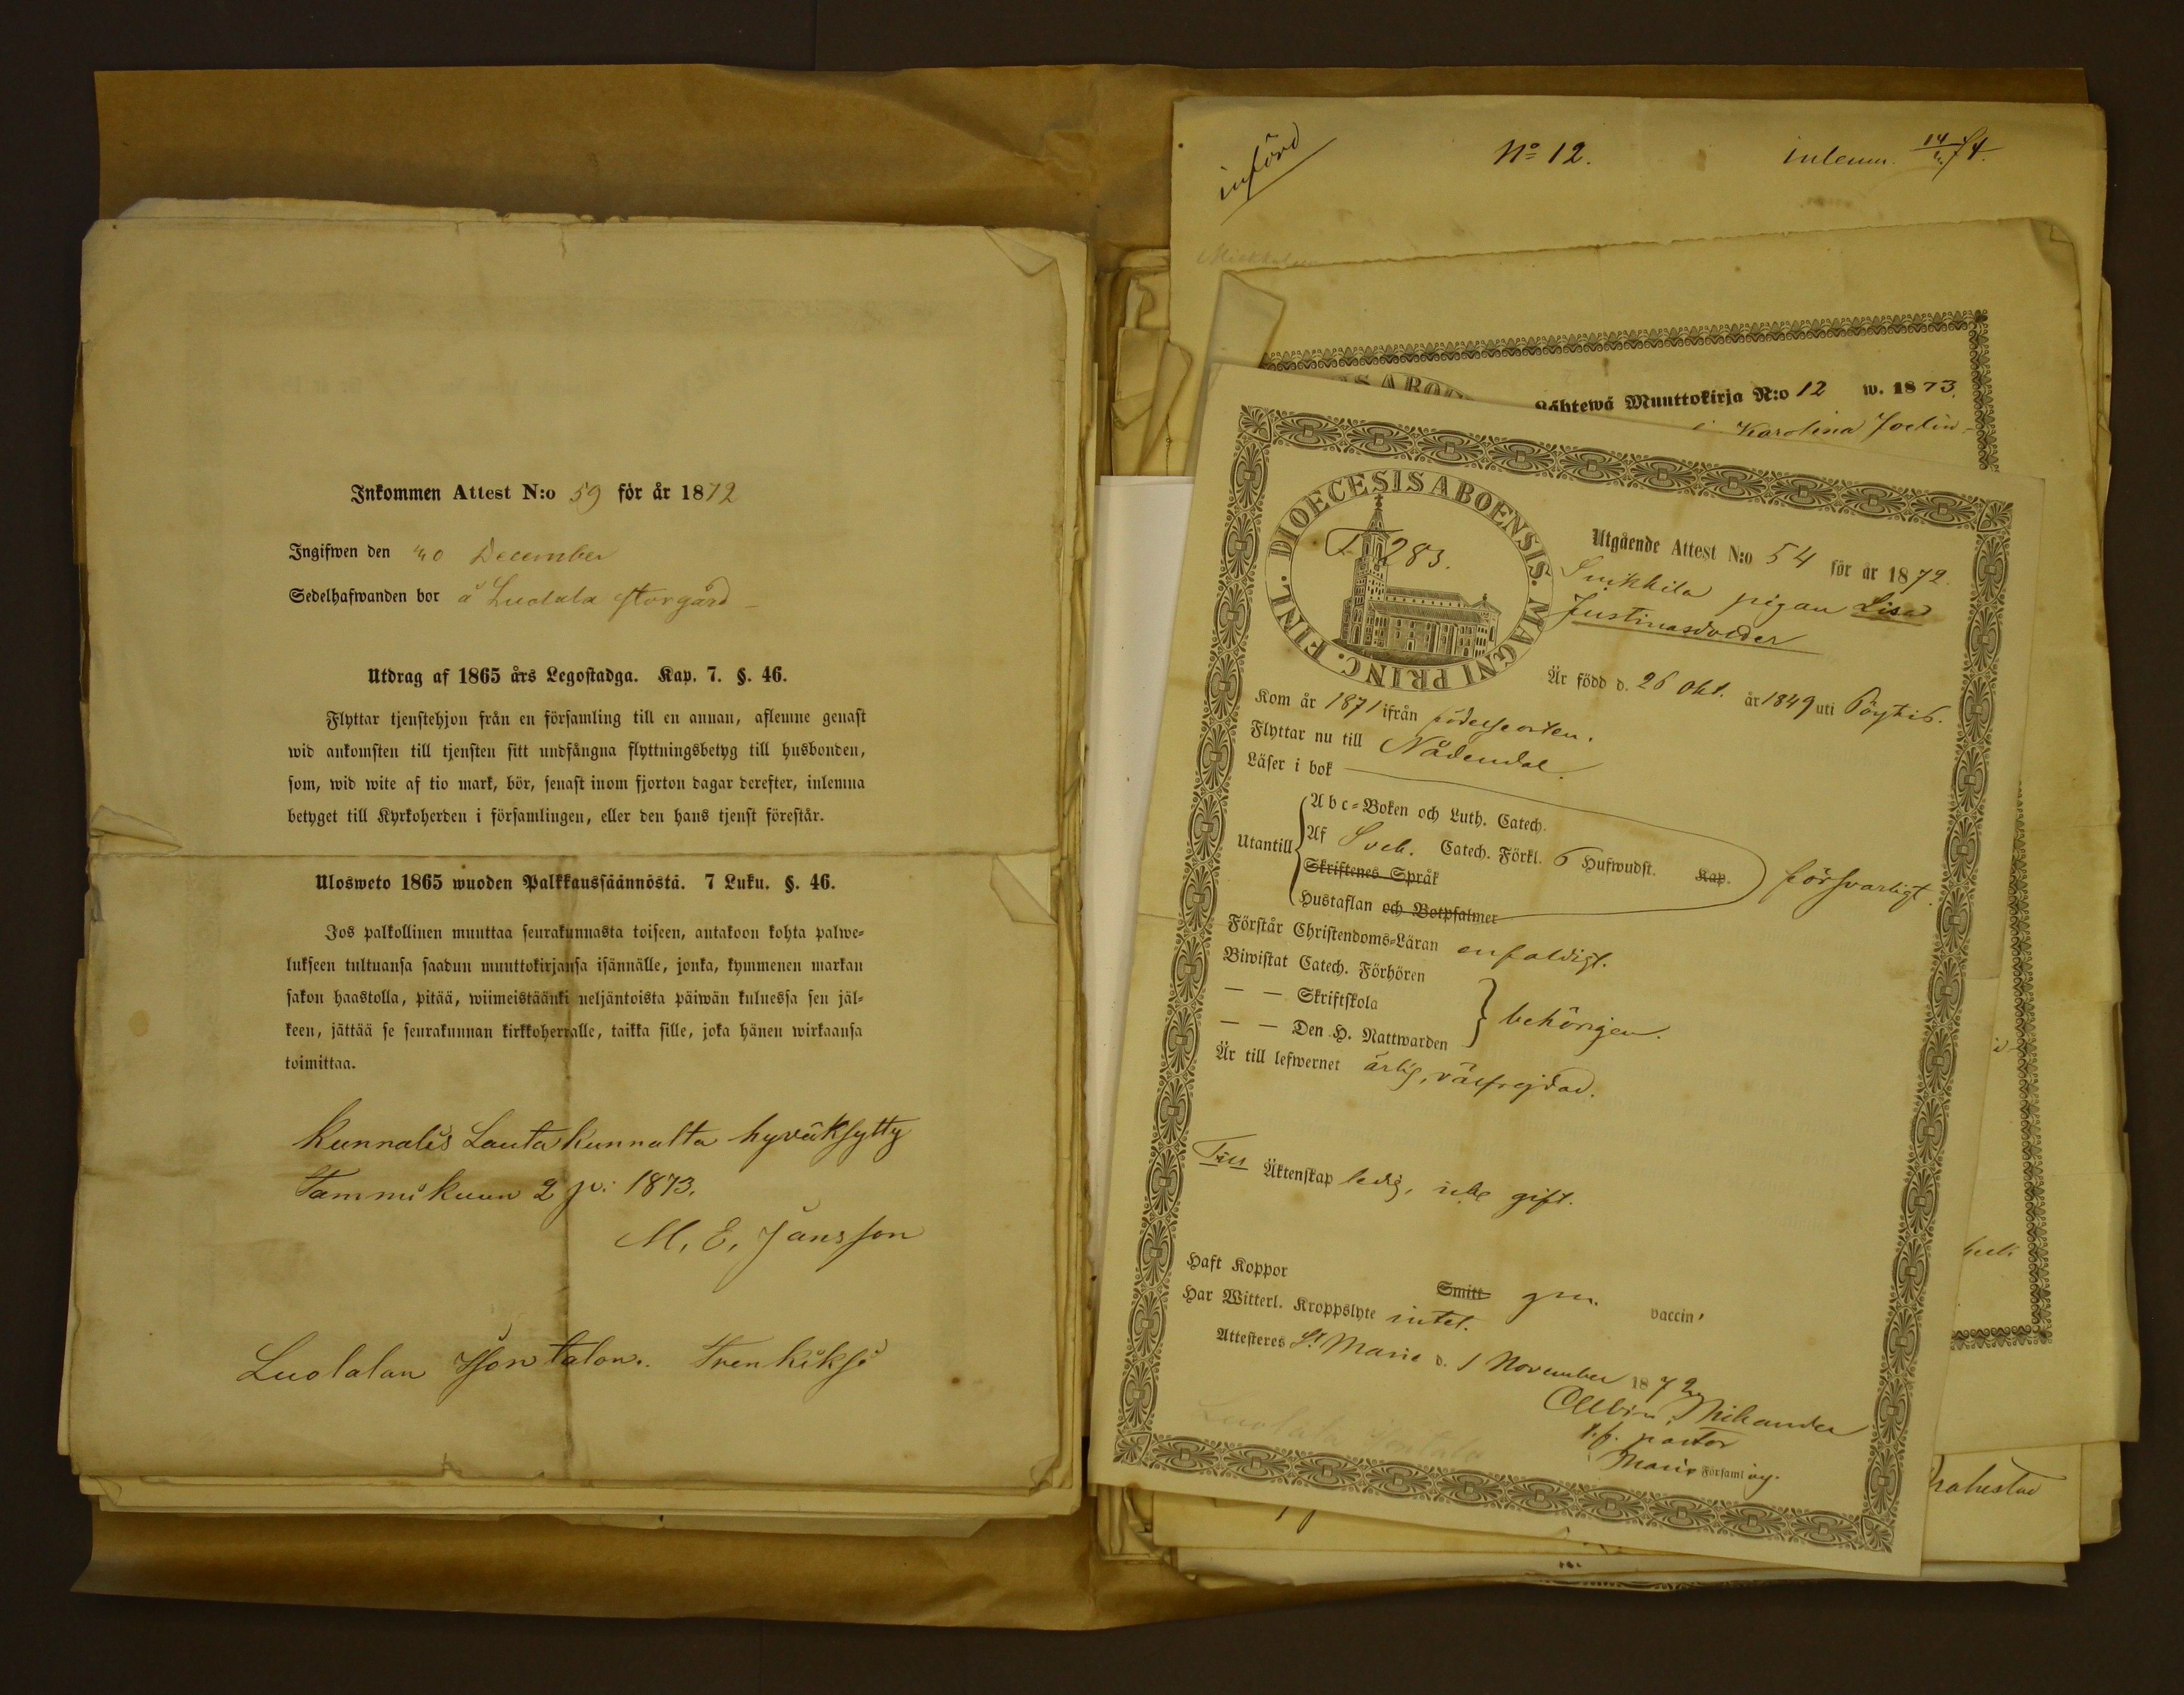 Inkommen Attest N:o 59 för år 1872
Ingifwen den 30 December
Sedelhafwanden bor å Luolala storgård
Utdrag af 1865 års Legostadga. Kap. 7. §. 46.
Flyttar tjenstehjon från en församling till en annan, aflemne genast
wid ankomsten till tjensten sitt undfångna flyttningsbetyg till husbonden,
som, wid wite af tio mark, bör, senast inom fjorton dagar derefter, inlemna
betyget till Kyrkoherden i församlingen, eller den hans tjenst förestår.
Ulosweto 1865 wuoden Palkkaussäännöstä. 7 Luku. §. 46.
Jos palkollinen muuttaa seurakunnasta toiseen, antakoon kohta palwe-
lukseen tultuansa saadun muuttokirjansa isännälle, jonka, kymmenen markan
sakon haastolla, pitää, wiimeistäänki neljäntoista päiwän kuluessa sen jäl-
keen, jättää se seurakunnan kirkkoherralle, taikka sille, joka hänen wirkaansa
toimittaa.
Kunnalis Lautakunnalta hyväksytty
Tammikuun 2 p: 1873.
M. E. Jansson
Luolalan Ison talon. Trenkiksi
införd
No 12.
inlemn. 14/74.
ABO
Lähtewä Muuttokirja N:o 12 w. 1873.
Karolina Joelin-
DIOECESIS ABOENSIS. MAGNI PRINC. FINL.
T 283.
Utgående Attest N:o 54 för år 1872.
Suikkila pigan Lisa
Justinasdotter
Är född d. 26 Okt. år 1849 uti Pöytis.
Kom år 1871 ifrån födelseorten.
Flyttar nu till Nådendal.
Läser i bok
Utantill
Abc-Boken och Luth. Catech.
Af Sveb. Catech. Förkl. 6 Hufwudst. Kap.
Skriftenes Språk
Hustaflan och Botpsalmer
försvarligt.
Förstår Christendoms-Läran enfaldigt.
Biwistat Catech. Förhören
— — Skriftskola
— — Den H. Nattwarden
behörigen.
Är till lefwernet ärlig, välfrejdad.
Till Äktenskap ledig, icke gift.
Haft Koppor Smitt gm. vaccin
Har Witterl. Kroppslyte intet.
Attesteres St Marie d. 1 November 1872
Albin
t.f. pastor
Marie Församling.
Luolala Isontalo